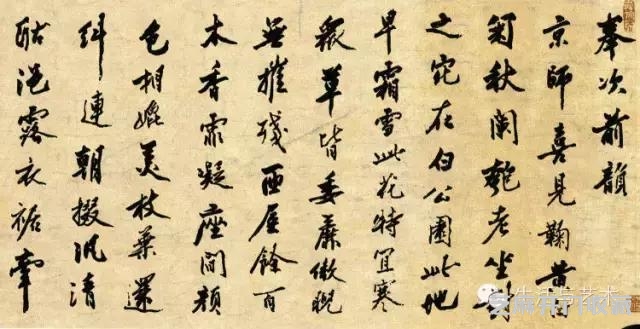 奉次前韻
京師喜見鞠黄
秋闌老坐對
之宛在白公園此地
早霜雪此花特宜寒
衆草皆委靡傲睨
無摧殘西屋餘百
木香霏凝座間顔
色相媲美枝葉還
糾連朝掇汎清
酤浥露衣裾牽